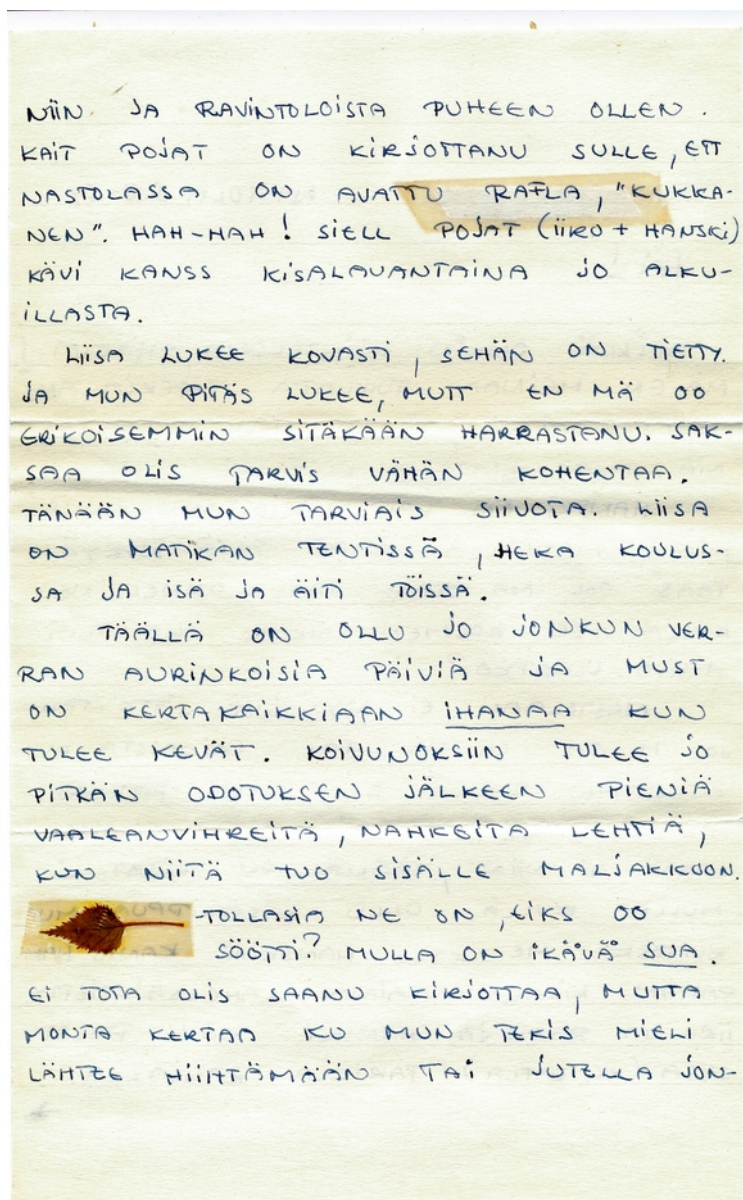 NIIN JA RAVINTOLOISTA PUHEEN OLLEN.
KAIT POJAT ON KIRJOTTANU SULLE, ETT
NASTOLASSA ON AVATTU RAFLA, "KUKKA-
NEN". HAH-HAH! SIELL POJAT (IIRO + HANSKI)
KÄVI KANSS KISALAVANTAINA JO ALKU-
ILLASTA.
LIISA LUKEE KOVASTI, SEHÄN ON TIETTY.
JA MUN PITÄS LUKEE, MUTT EN MÄ OO
ERIKOISEMMIN SITÄKÄÄN HARRASTANU. SAK-
SAA OLIS TARVIS VÄHÄN KOHENTAA.
TÄNÄÄN MUN TARVIAIS SIIVOTA. LIISA
ON MATIKAN TENTISSÄ, HEKA KOULUS-
SA JA ISÄ JA ÄITI TÖISSÄ.
TÄÄLLÄ ON OLLU JO JONKUN VER-
RAN AURINKOISIA PÄIVIÄ JA MUST
ON KERTAKAIKKIAAN IHANAA KUN
TULEE KEVÄT. KOIVUNOKSIIN TULEE JO
PITKÄN ODOTUKSEN JÄLKEEN PIENIÄ
VAALEANVIHREITÄ, NAHKEITA LEHTIÄ,
KUN NIITÄ TUO SISÄLLE MALJAKKOON.
-TOLLASIA NE ON, EIKS OO
SÖÖTTI? MULLA ON IKÄVÄ SUA.
EI TOTA OLIS SAANU KIRJOTTAA, MUTTA
MONTA KERTAA KU MUN TEKIS MIELI
LÄHTEE HIIHTÄMÄÄN TAI JUTELLA JON-